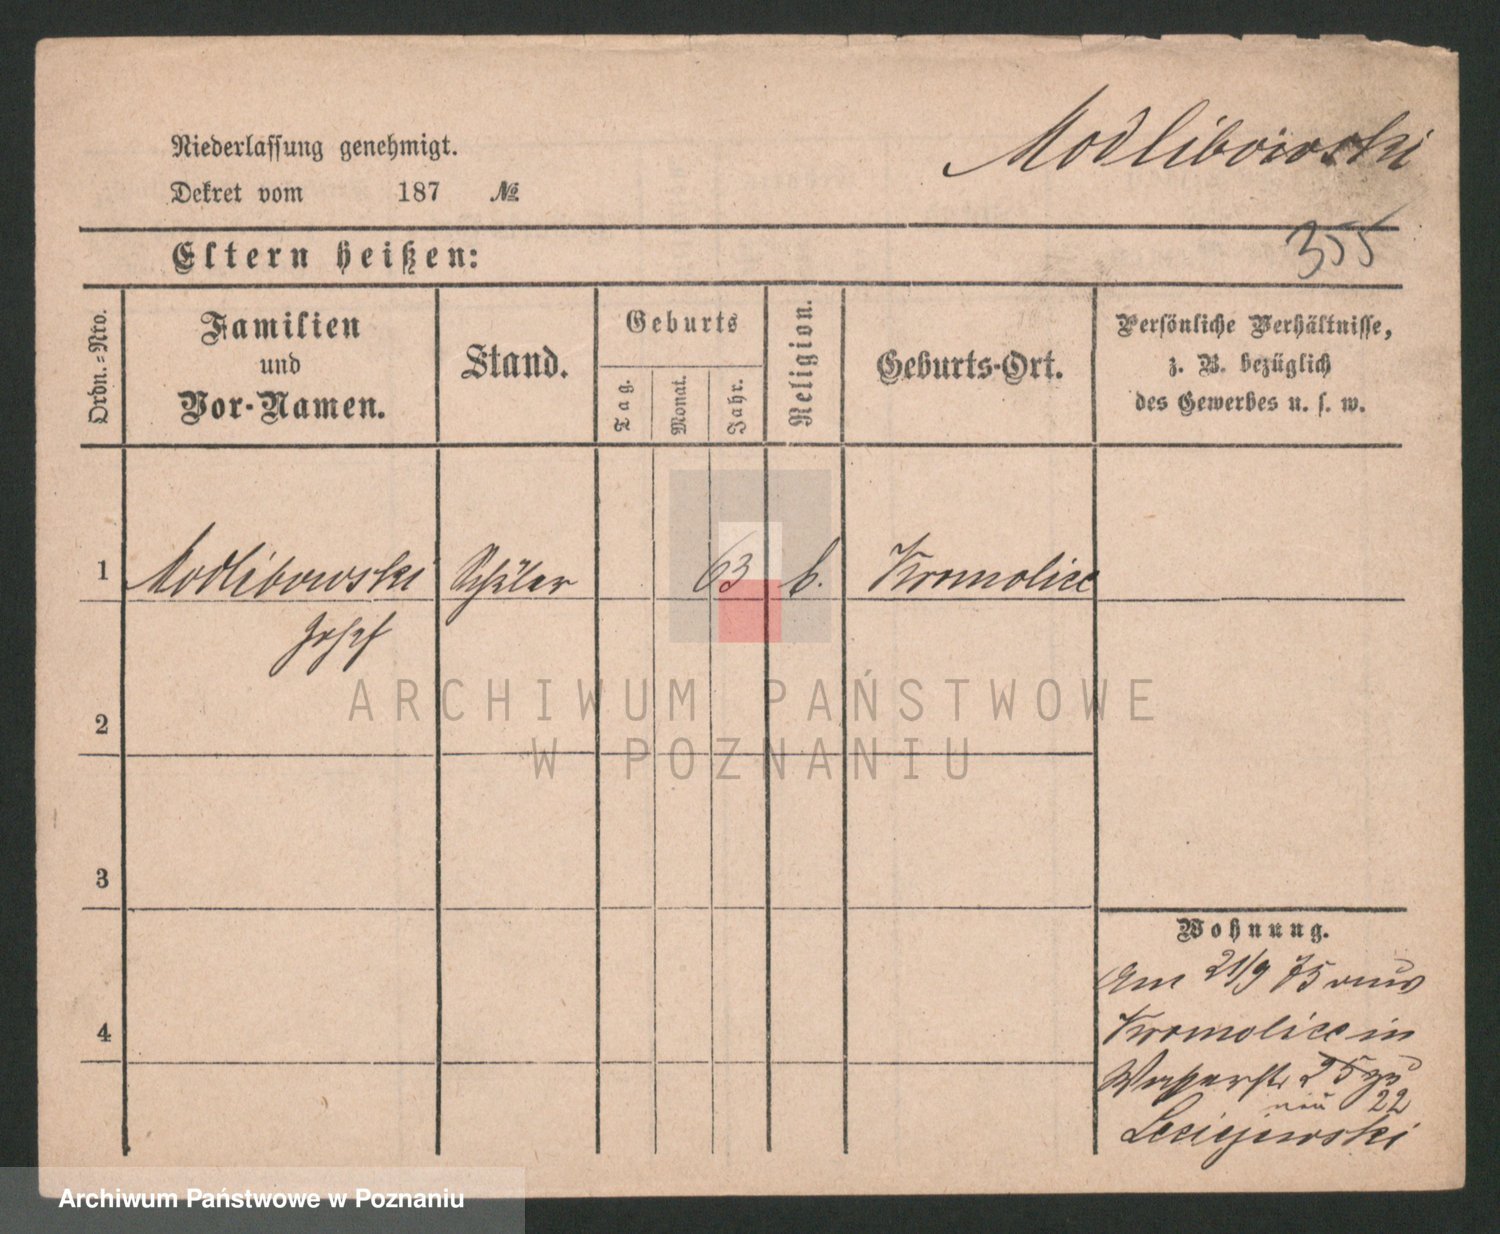 Modlibowski
Niederlassung genehmigt.
Dekret vom 187 №
355
Eltern heißen:
Ordn.=Nro.
Familien
und
Vor-Namen.
Stand.
Geburts
Tag.
Monat.
Jahr.
Religion.
Geburts-Ort.
Persönliche Verhältnisse,
z. B. bezüglich
des Gewerbes u. s. w.
1 Modlibowski Schüler 63 k. Kromolice
Josef
2
3
4
Wohnung.
Am 21/9 75 aus
Kromolice in
Wasserstr. 25 zu
neu 22
Leciejewski
ARCHIWUM PAŃSTWOWE
W POZNANIU
Archiwum Państwowe w Poznaniu